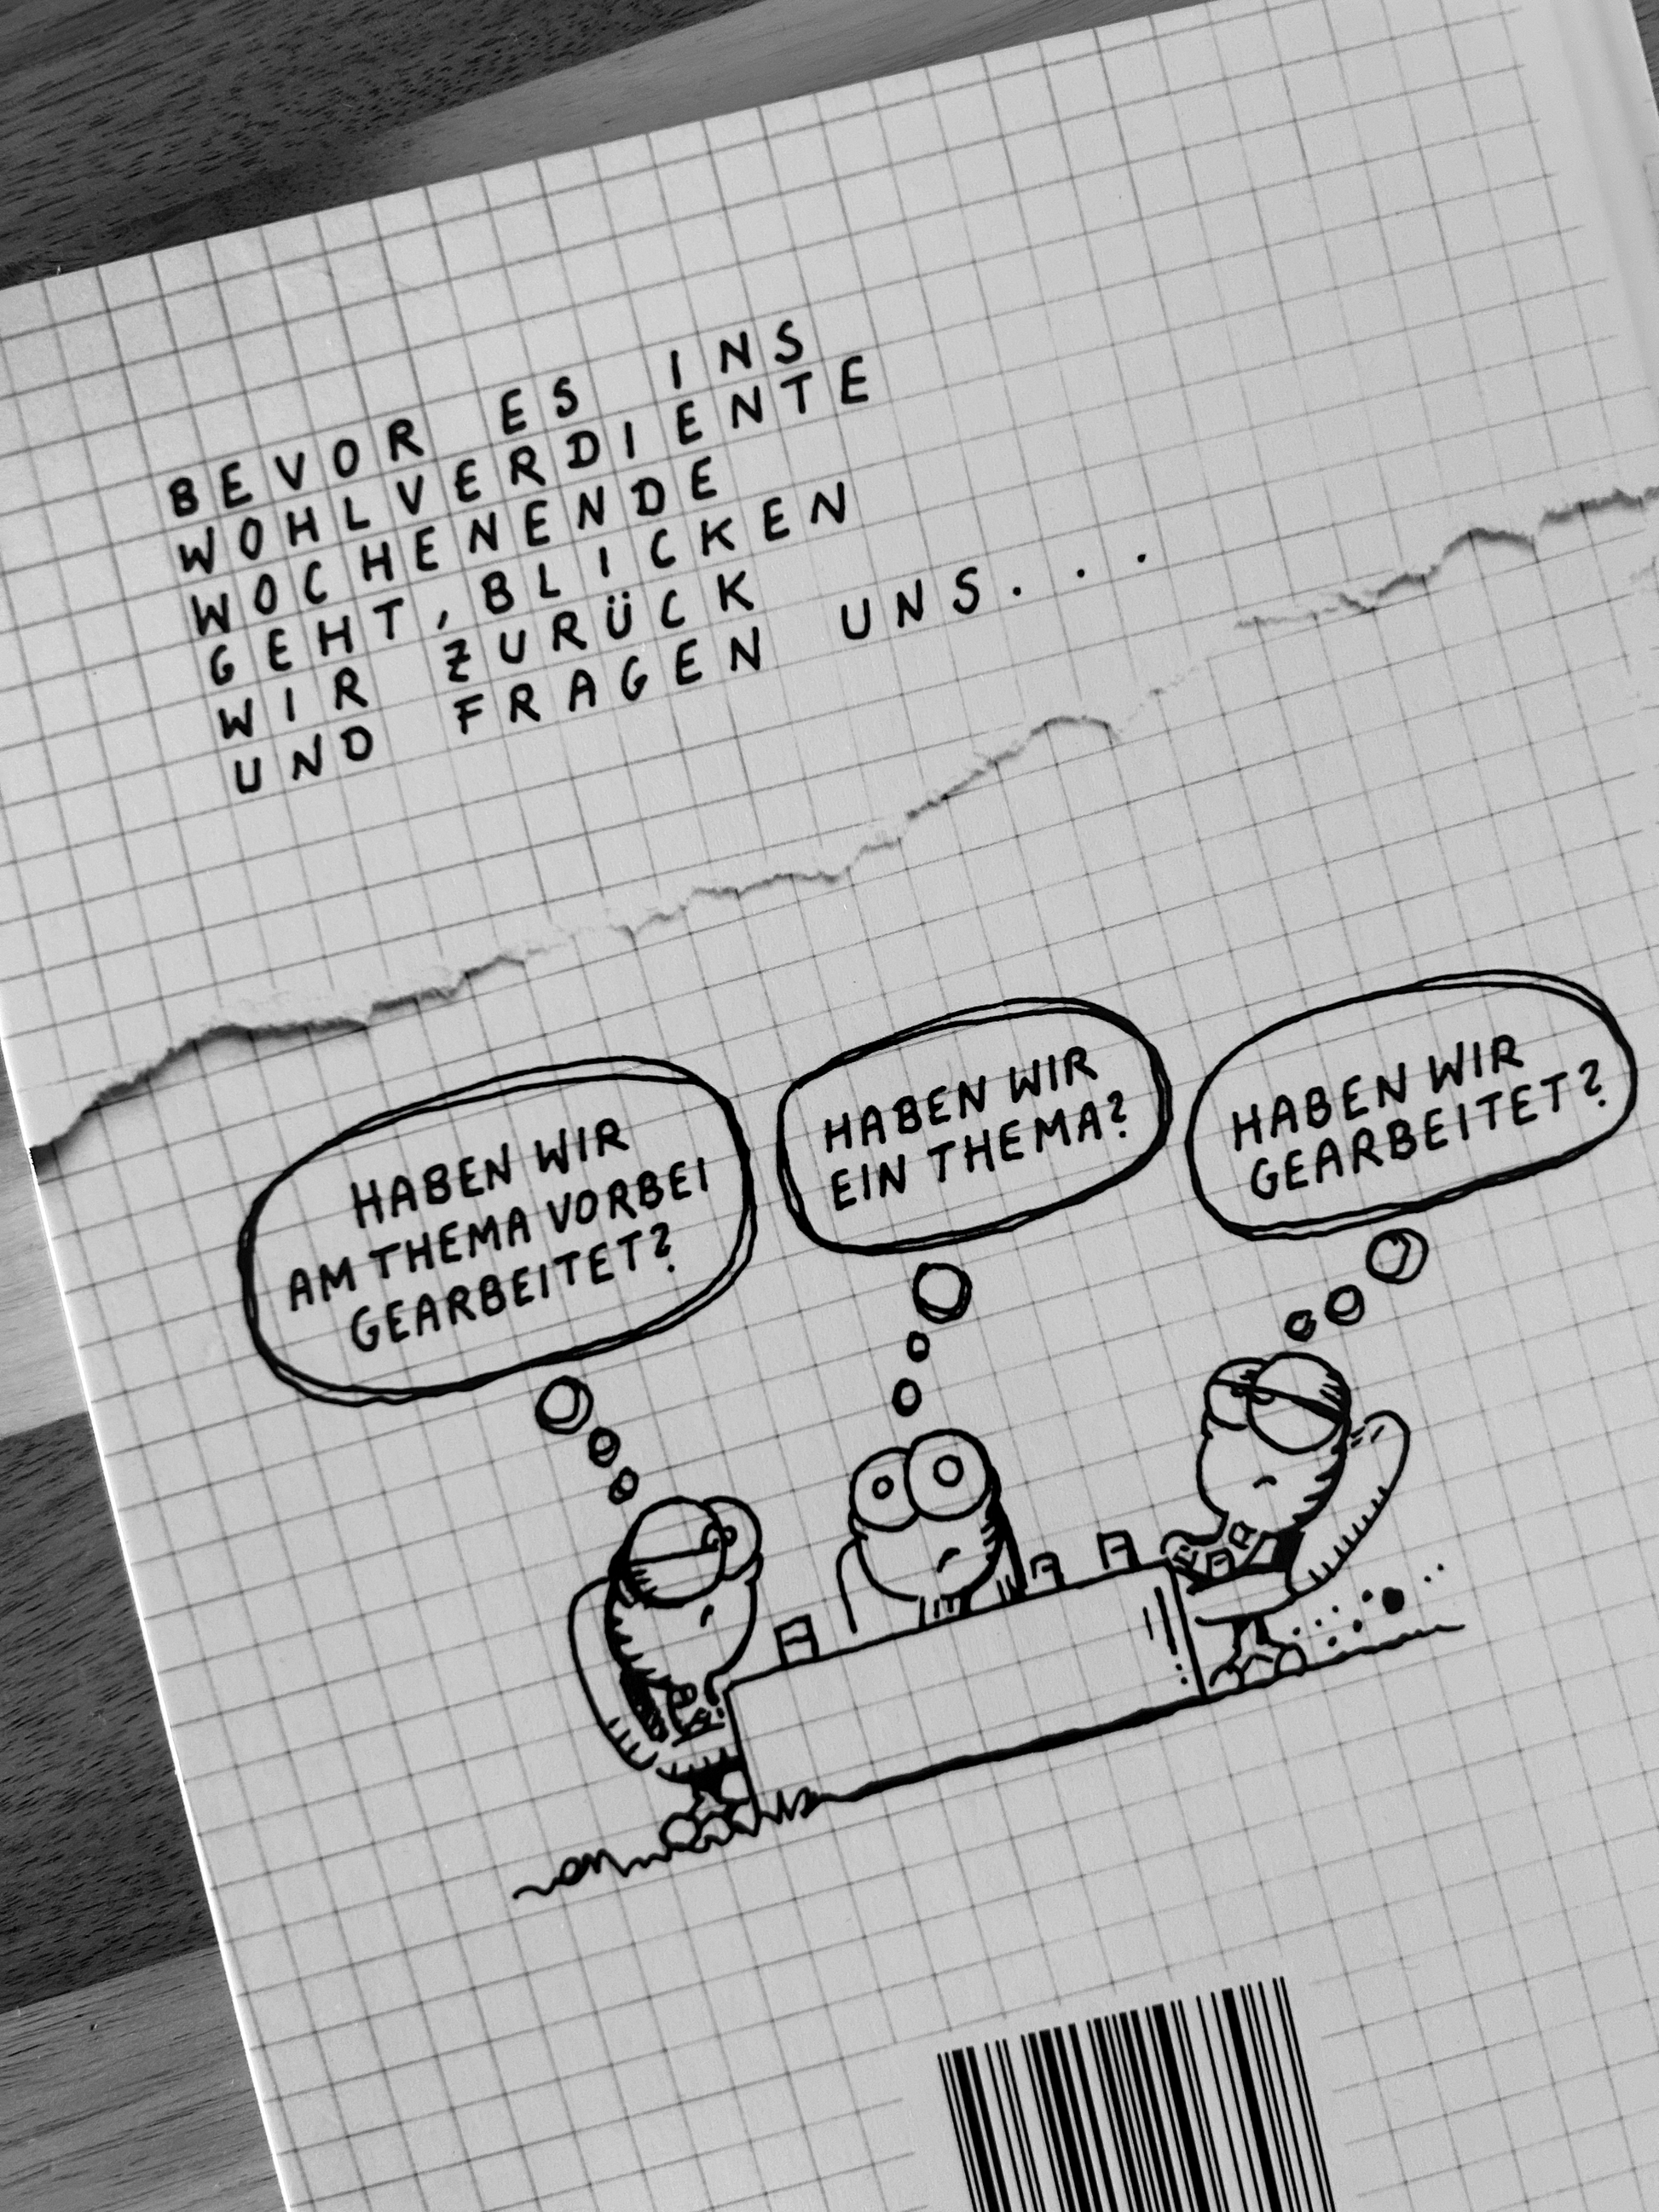 BEVOR ES INS
WOHLVERDIENTE
WOCHENENDE
GEHT, BLICKEN
WIR ZURÜCK
UND FRAGEN UNS...
HABEN WIR
AM THEMA VORBEI
GEARBEITET?
HABEN WIR
EIN THEMA?
HABEN WIR
GEARBEITET?